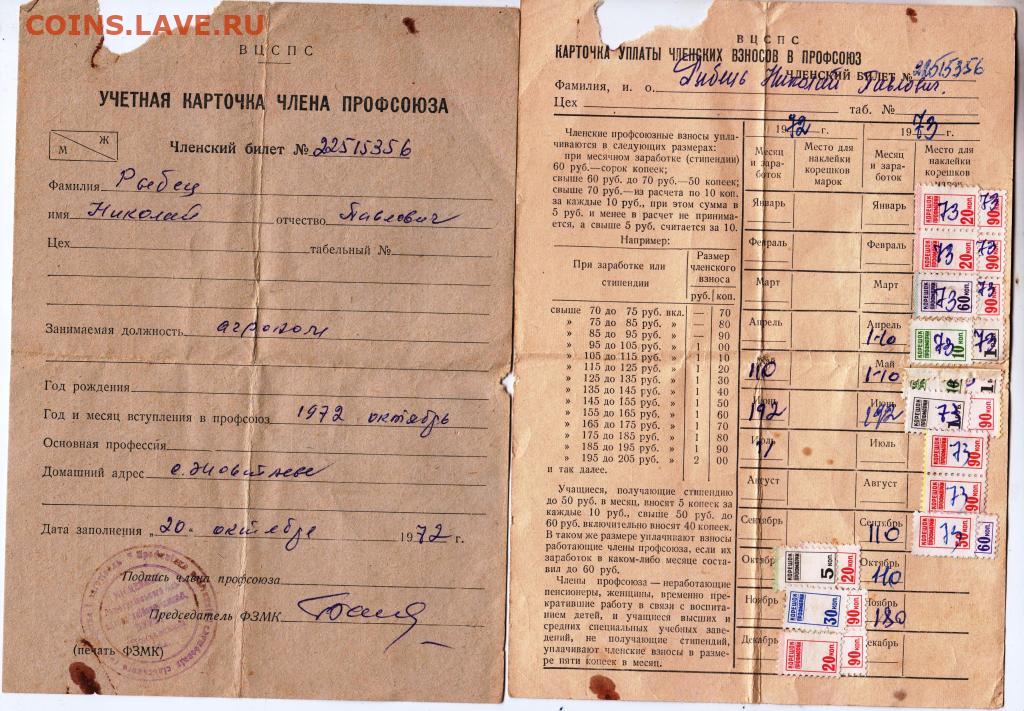 COINS.LAVE.RU
ВЦСПС
УЧЕТНАЯ КАРТОЧКА ЧЛЕНА ПРОФСОЮЗА
М Ж
Членский билет № 22515356
Фамилия Рыбец
имя Николай отчество Павлович
Цех табельный №
Занимаемая должность агроном
Год рождения
Год и месяц вступления в профсоюз 1972 октябрь
Основная профессия
Домашний адрес с.
Дата заполнения „20" октября 1972 г.
Подпись члена профсоюза
Председатель ФЗМК
(печать ФЗМК)
ВЦСПС
КАРТОЧКА УПЛАТЫ ЧЛЕНСКИХ ВЗНОСОВ В ПРОФСОЮЗ
ЧЛЕНСКИЙ БИЛЕТ № 22515356
Фамилия, и. о. Рыбець Николай Павлович.
Цех таб. №
Членские профсоюзные взносы упла-
чиваются в следующих размерах:
при месячном заработке (стипендии)
60 руб.—сорок копеек;
свыше 60 руб. до 70 руб.—50 копеек;
свыше 70 руб.—из расчета по 10 коп.
за каждые 10 руб., при этом сумма в
5 руб. и менее в расчет не принима-
ется, а свыше 5 руб. считается за 10.
Например:
При заработке или стипендии
Размер членского взноса
руб. коп.
свыше 70 до 75 руб. вкл. — 70
» 75 до 85 руб. » — 80
» 85 до 95 руб. » — 90
» 95 до 105 руб. » 1 00
» 105 до 115 руб. » 1 10
» 115 до 125 руб. » 1 20
» 125 до 135 руб. » 1 30
» 135 до 145 руб. » 1 40
» 145 до 155 руб. » 1 50
» 155 до 165 руб. » 1 60
» 165 до 175 руб. » 1 70
» 175 до 185 руб. » 1 80
» 185 до 195 руб. » 1 90
» 195 до 205 руб. » 2 00
и так далее.
Учащиеся, получающие стипендию
до 50 руб. в месяц, вносят 5 копеек за
каждые 10 руб., свыше 50 руб. до
60 руб. включительно вносят 40 копеек.
В таком же размере уплачивают взносы
работающие члены профсоюза, если их
заработок в каком-либо месяце соста-
вил до 60 руб.
Члены профсоюза — неработающие
пенсионеры, женщины, временно пре-
кратившие работу в связи с воспита-
нием детей, и учащиеся высших и
средних специальных учебных заве-
дений, не получающие стипендий,
уплачивают членские взносы в разме-
ре пяти копеек в месяц.
1972 г. 1973 г.
Месяц и зара-боток
Место для наклейки корешков марок
Месяц и зара-боток
Место для наклейки корешков
Январь Январь КОРЕШОК 20 коп. 73 90 73
Февраль Февраль КОРЕШОК 20 коп. 73 90 73
Март Март КОРЕШОК 60 коп. 73 90 73
Апрель Апрель 1-10 КОРЕШОК 10 коп. 73 73
Май 110 Май 1-10
Июнь 192 Июнь 192 КОРЕШОК 73 90
Июль Июль КОРЕШОК 90 73
Август Август КОРЕШОК 90 73
Сентябрь Сентябрь 110 КОРЕШОК 73 60 коп.
Октябрь КОРЕШОК 5 коп. 20 коп. Октябрь 110
Ноябрь КОРЕШОК 30 коп. 90 коп. Ноябрь 180
Декабрь КОРЕШОК 20 коп. 90 коп. Декабрь